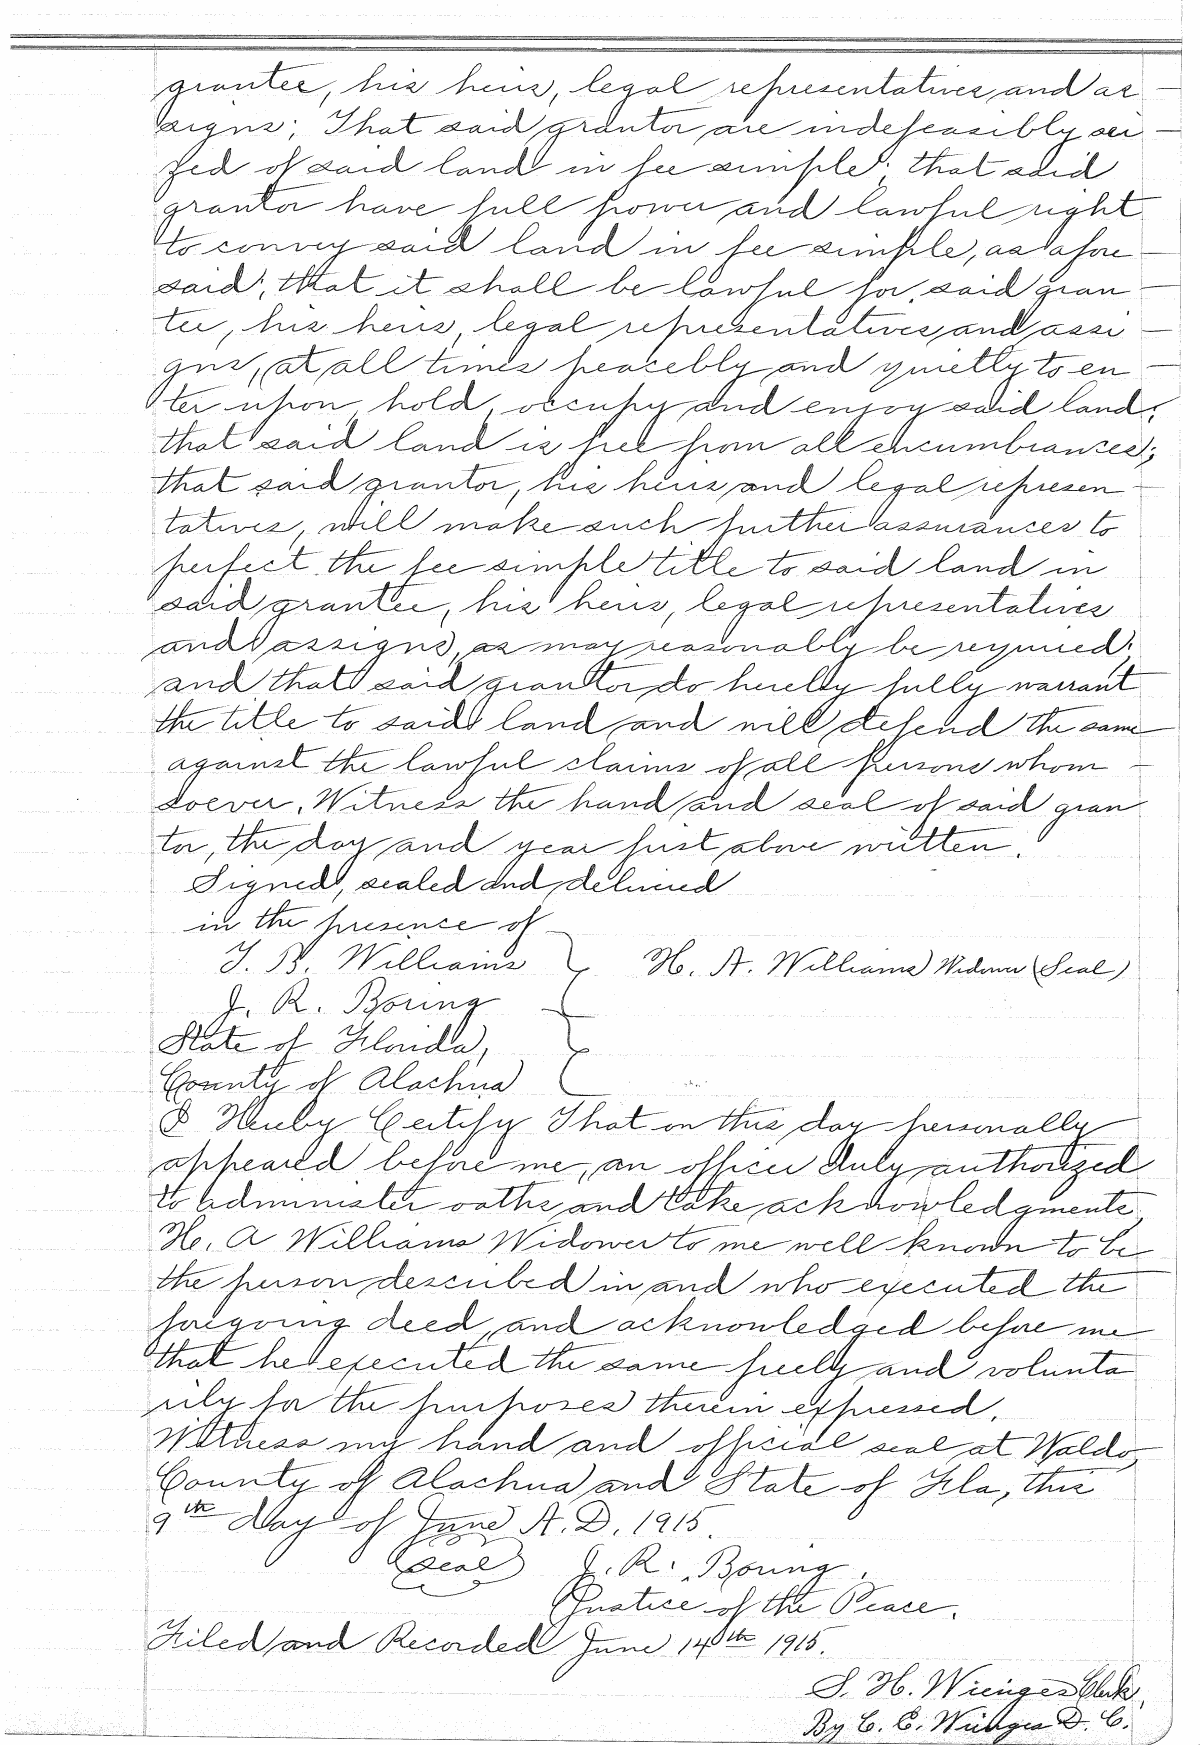 grantee, his heirs, legal representatives and as
signs; That said grantor are indefeasibly sei
zed of said land in fee simple; that said
grantor have full power and lawful right
to convey said land in fee simple, as afore
said; that it shall be lawful for said gran
tee, his heirs, legal representatives and assi
gns, at all times peacebly and quietly to en
ter upon, hold, occupy and enjoy said land;
that said land is free from all encumbrances;
that said grantor, his heirs and legal represen
tatives, will make such further assurances to
perfect the fee simple title to said land in
said grantee, his heirs, legal representatives
and assigns, as may reasonably be required;
and that said grantor do hereby fully warrant
the title to said land and will defend the same
against the lawful claims of all persons whom
soever. Witness the hand and seal of said gran
tor, the day and year first above written.
Signed, sealed and delivered
in the presence of
J. B. Williams } H. A. Williams Widower (Seal)
J. R. Boring
State of Florida,
County of Alachua
I Hereby Certify That on this day personally
appeared before me, an officer duly authorized
to administer oaths and take acknowledgments,
H. A Williams Widower to me well known to be
the person described in and who executed the
foregoing deed, and acknowledged before me
that he executed the same freely and volunta
rily for the purposes therein expressed.
Witness my hand and official seal at Waldo,
County of Alachua and State of Fla, this
9th day of June A. D. 1915.
(Seal) J. R. Boring,
Justice of the Peace.
Filed and Recorded June 14th 1915.
S. H. Wienges Clerk,
By C. C. Wienges D. C.